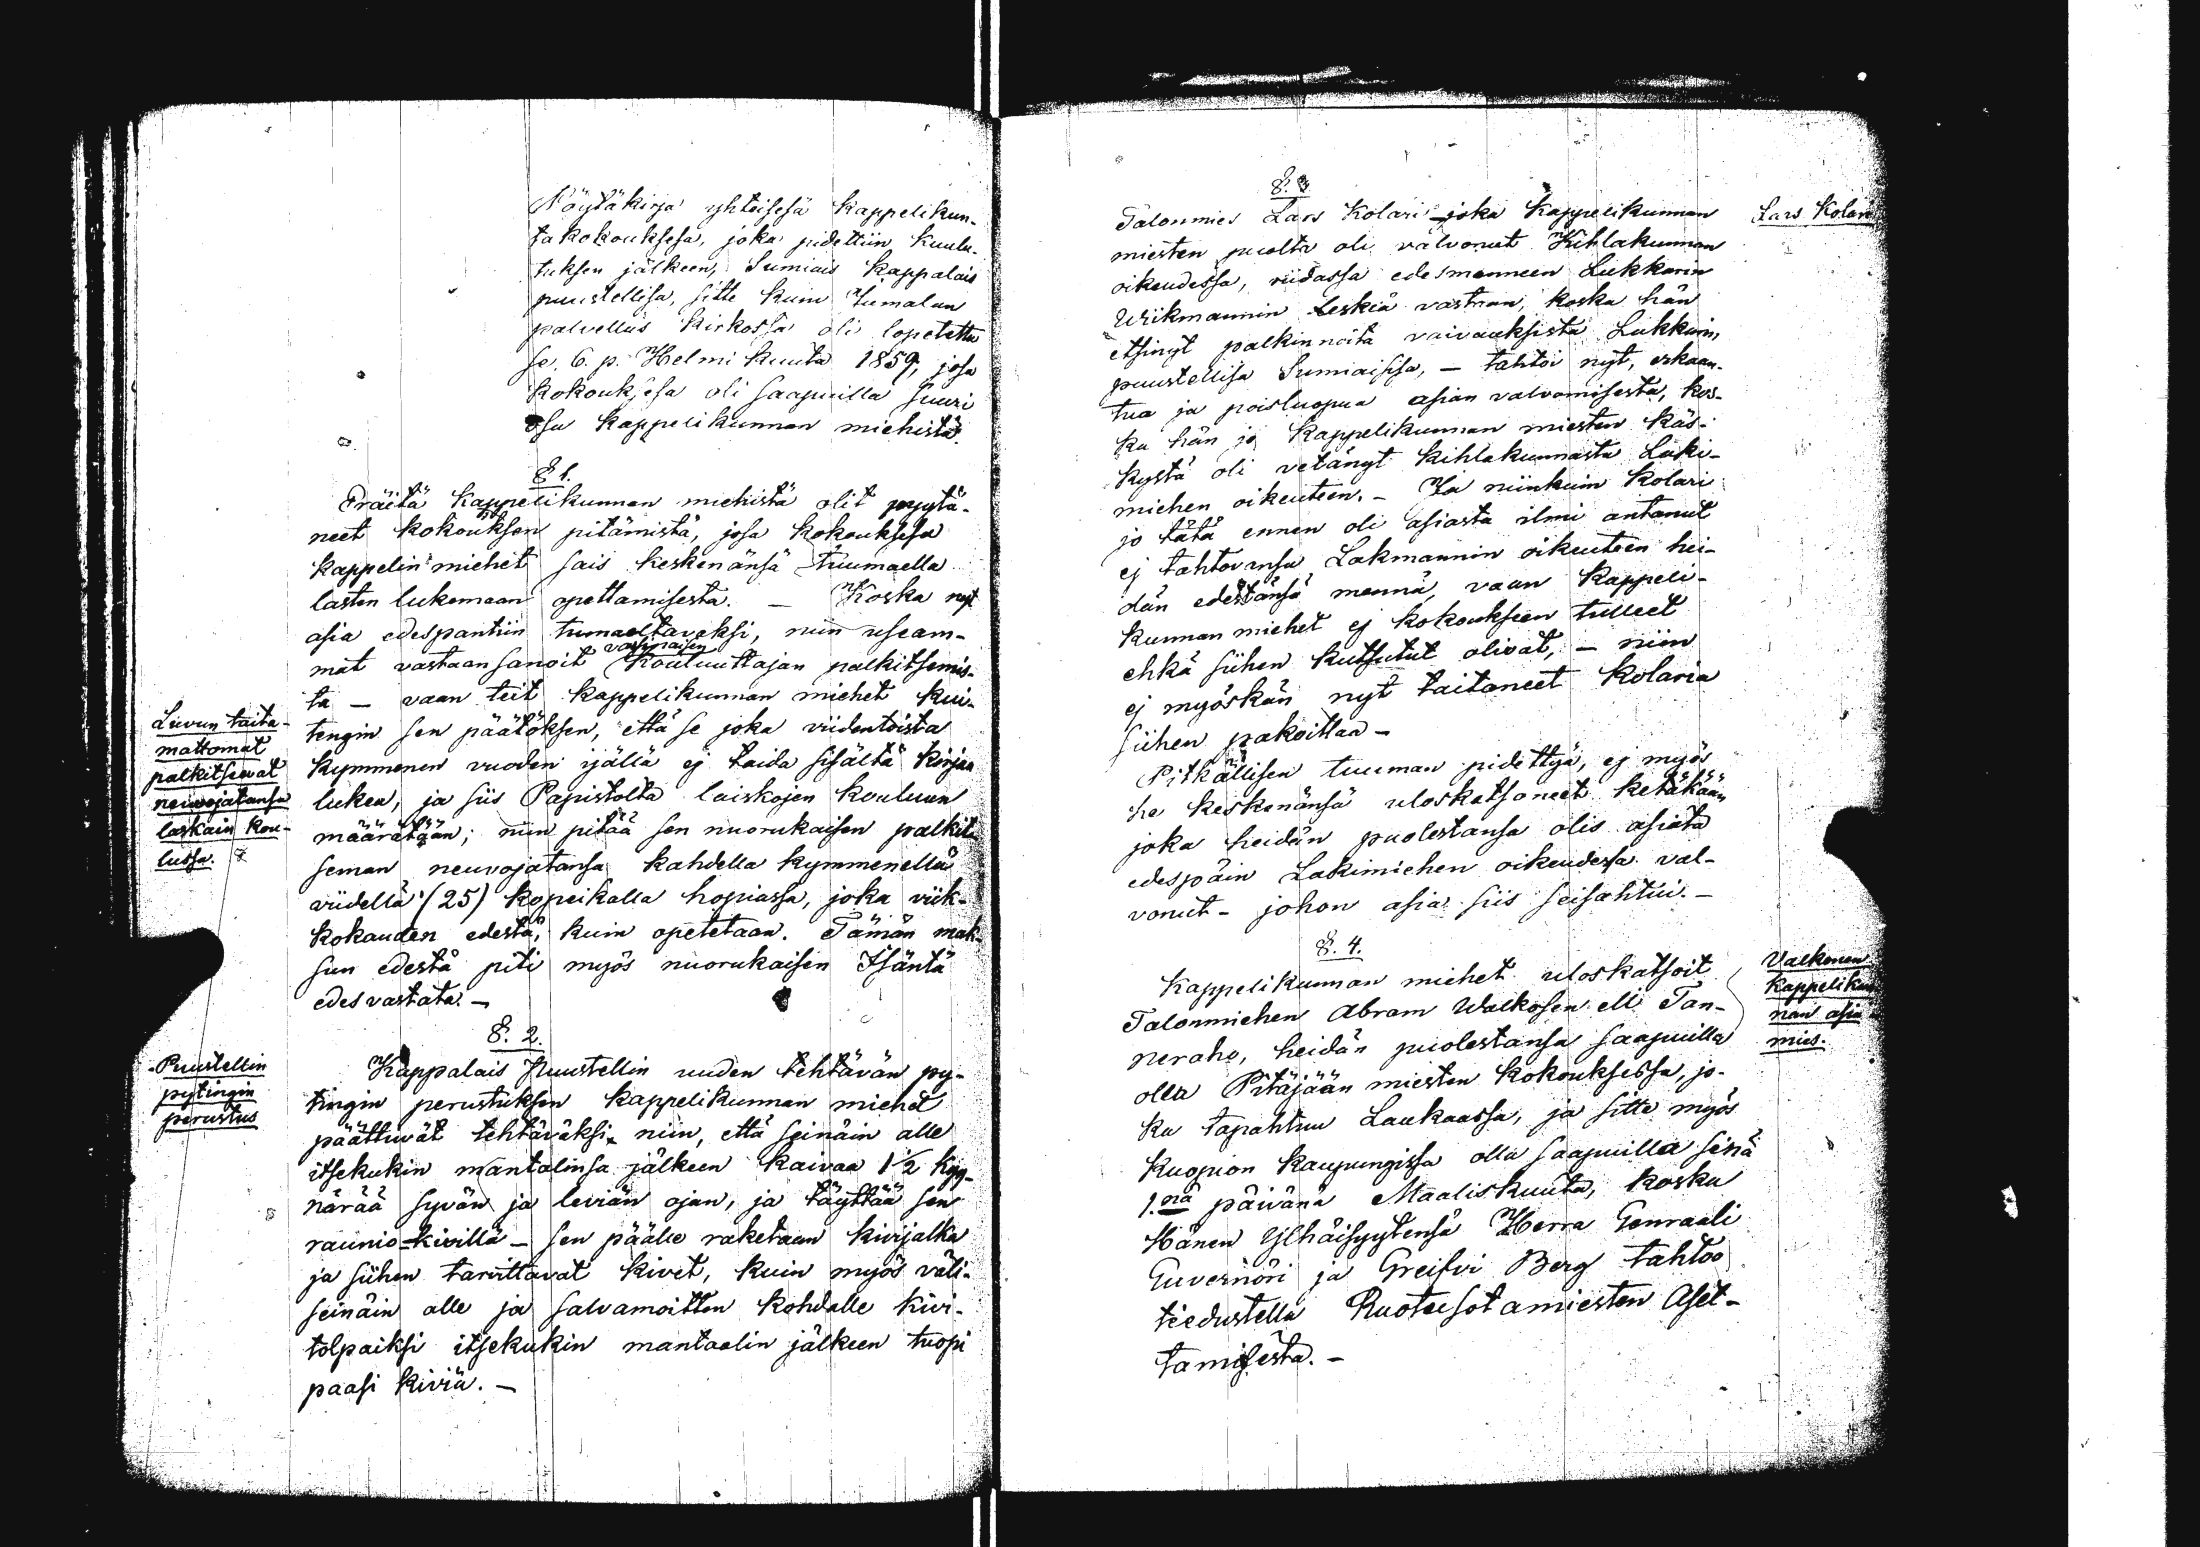 Pöytäkirja yhteisesä Kappelikun-
takokouksesa, joka pidettiin Kuulu-
tuksen jälkeen, Sumiais Kappalais
puustellisa, sitte kuin Jumalan
palvellus kirkossa oli lopetettu
se. 6. p. Helmi kuuta 1859, josa
Kokouksesa oli saapuilla suuri
osa Kappelikunnan miehistä.
§ 1.
Eräitä Kappelikunnan miehistä olit pyytä-
neet kokouksen pitämistä, josa kokouksesa
kappelin miehet sais keskenänsä tuumaella
lasten lukemaan opettamisesta. — Koska nyt
asia edespantiin tumaeltavaksi, niin useam-
mat vastaansanoit Kouluuttajan palkitsemis-
ta — vaan teit kappelikunnan miehet kui-
tengin sen päätöksen, että se joka viidentoista
kymmenen vuoden ijällä ej taida sisältä kirjaa
lukea, ja siis Papistolta laiskojen kouluun
määrätään; niin pitää sen nuorukaisen palkit-
seman neuvojatansa kahdella kymmenellä
viidellä (25) kopeikalla hopiassa, joka viik-
kokauden edestä, kuin opetetaan. Tämän mak-
sun edestä piti myös nuorukaisen Isäntä
edesvastata. —
Luvun taita-
mattomat
palkitsevat
neuvojatansa
laskain kou-
lussa.
§. 2.
Kappalais Puustellin uuden tehtävän py-
tingin perustuksen kappelikunnan miehet
päättivät tehtäväksi niin, että seinäin alle
itsekukin mantalinsa jälkeen kaivaa 1 1/2 kyy-
närää syvän ja leviän ojan, ja täyttää sen
raunio-kivillä — sen päälle raketaan kivijalka
ja siihen tarvittavat kivet, kuin myös väli-
seinäin alle ja salvamoitten kohdalle kivi-
tolpaiksi itsekukin mantaalin jälkeen tuopi
paasi kiviä. —
Puustellin
pytingin
perustus
§. 3
Talonmies Lars Kolari joka Kappelikunnan
miesten puolta oli valvonut Kihlakunnan
oikeudessa, riidassa edesmenneen Lukkarin
Wiikmannin Leskiä vastaan, koska hän
etsinyt palkinnoita vaivauksista Lukkarin,
puustellisa Sumiaisisa, — tahtoi nyt, erkaan-
tua ja poisluopua asian valvomisesta, kos-
ka hän jo Kappelikunnan miesten käs-
kystä oli vetänyt kihlakunnasta Laki-
miehen oikeuteen. — Ja niinkuin Kolari
jo tätä ennen oli asiasta ilmi antanut
ej tahtovansa Lakmannin oikeuteen hei-
dän edestänsä mennä, vaan Kappeli-
kunnan miehet ej kokoukseen tulleet
ehkä siihen kutsutut olivat, — niin
ej myöskän nyt taitaneet Kolaria
siihen pakoittaa —
Pitkällisen tuuman pidettyä, ej myös
he keskenänsä uloskatsoneet ketäkään
joka heidän puolestansa olis asiata
edespäin Lakimiehen oikeudessa val-
vonut — johon asia siis seisahtui. —
Lars Kolari
§. 4.
Kappelikunnan miehet uloskatsoit
Talonmiehen Abram Walkosen eli Tan-
neraho, heidän puolestansa saapuilla
olla Pitäjään miesten kokouksessa, jo-
ka tapahtuu Laukaassa, ja sitte myös
Kuopion kaupungissa olla saapuilla sinä
1.nä päivänä Maaliskuuta, koska
Hänen Ylhäisyytensä Herra Genraali
Guvernöri ja Greifvi Berg tahtoo
tiedustella Ruotusotamiesten Aset-
tamisesta. —
Valkonen
Kappelikun-
nan asia
mies.